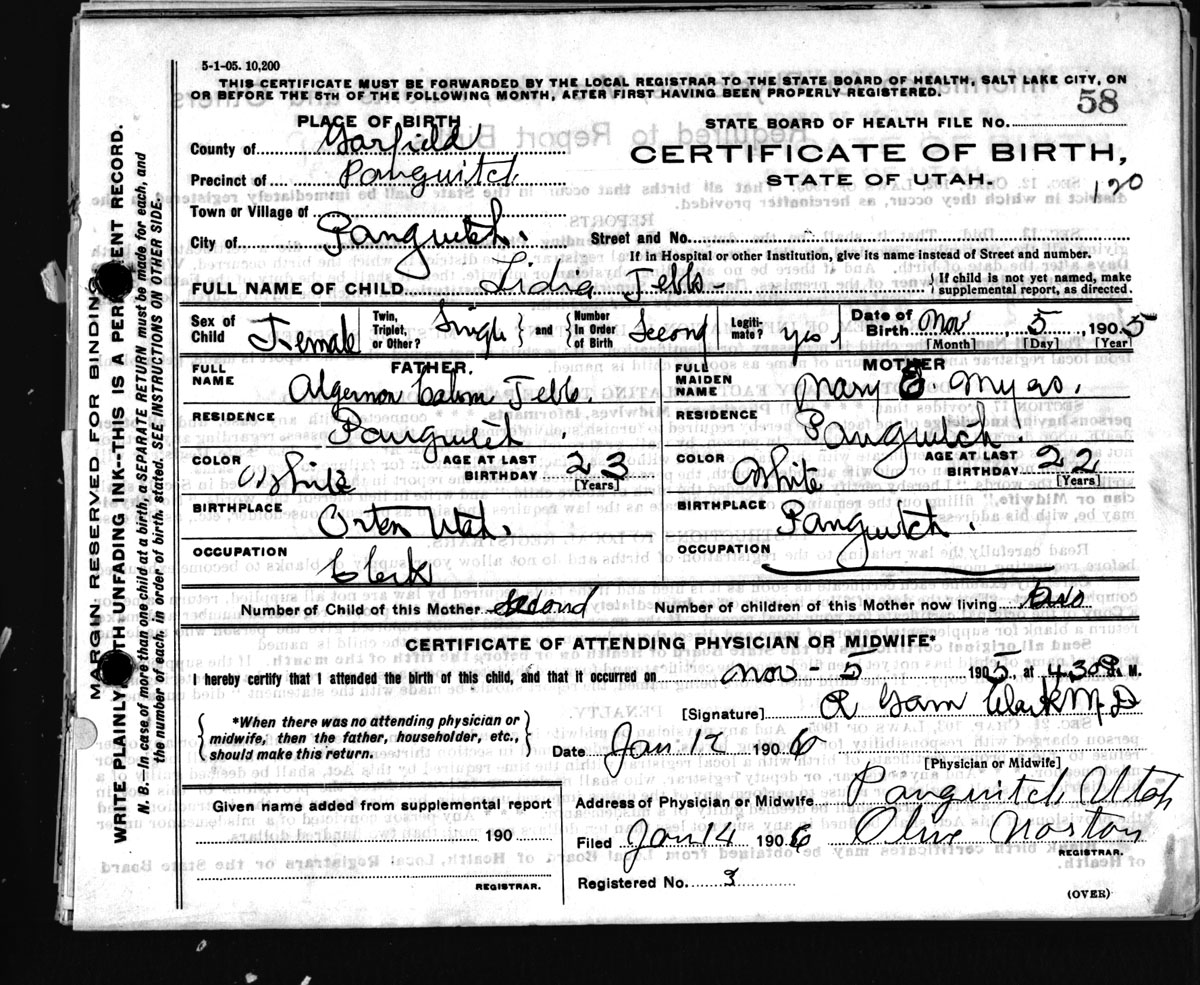 5-1-05. 10,200
THIS CERTIFICATE MUST BE FORWARDED BY THE LOCAL REGISTRAR TO THE STATE BOARD OF HEALTH, SALT LAKE CITY, ON
OR BEFORE THE 5TH OF THE FOLLOWING MONTH, AFTER FIRST HAVING BEEN PROPERLY REGISTERED.
58
PLACE OF BIRTH
STATE BOARD OF HEALTH FILE NO.
County of Garfield
CERTIFICATE OF BIRTH,
Precinct of Panguitch
STATE OF UTAH.
120
Town or Village of
City of Panguitch.
Street and No.
If in Hospital or other Institution, give its name instead of Street and number.
FULL NAME OF CHILD Lidia Tebbs
If child is not yet named, make supplemental report, as directed.
Sex of Child Female Twin, Triplet, or Other? Single and Number In Order of Birth Second Legiti- mate? yes Date of Birth Nov 5, 1905
[Month] [Day] [Year]
FATHER.
MOTHER
FULL NAME Algernon Tebbs.
FULL MAIDEN NAME Mary E. Myers.
RESIDENCE Panguitch.
RESIDENCE Panguitch.
COLOR White AGE AT LAST BIRTHDAY 23 [Years]
COLOR White AGE AT LAST BIRTHDAY 22 [Years]
BIRTHPLACE Orten Utah.
BIRTHPLACE Panguitch.
OCCUPATION Clerk
OCCUPATION
Number of Child of this Mother Second Number of children of this Mother now living two
CERTIFICATE OF ATTENDING PHYSICIAN OR MIDWIFE*
I hereby certify that I attended the birth of this child, and that it occurred on Nov 5 1905, at 4.30 P. M.
*When there was no attending physician or
midwife, then the father, householder, etc.,
should make this return.
[Signature] R Garn Clark M.D
Date Jan. 12 1906
[Physician or Midwife]
Given name added from supplemental report
190
REGISTRAR.
Address of Physician or Midwife Panguitch Utah
Filed Jan 14 1906 Olive Norton
REGISTRAR.
Registered No. 3
(OVER)
MARGIN RESERVED FOR BINDING
WRITE PLAINLY WITH UNFADING INK—THIS IS A PERMANENT RECORD.
N. B.—In case of more than one child at a birth, a SEPARATE RETURN must be made for each, and
the number of each, in order of birth, stated. SEE INSTRUCTIONS ON OTHER SIDE.